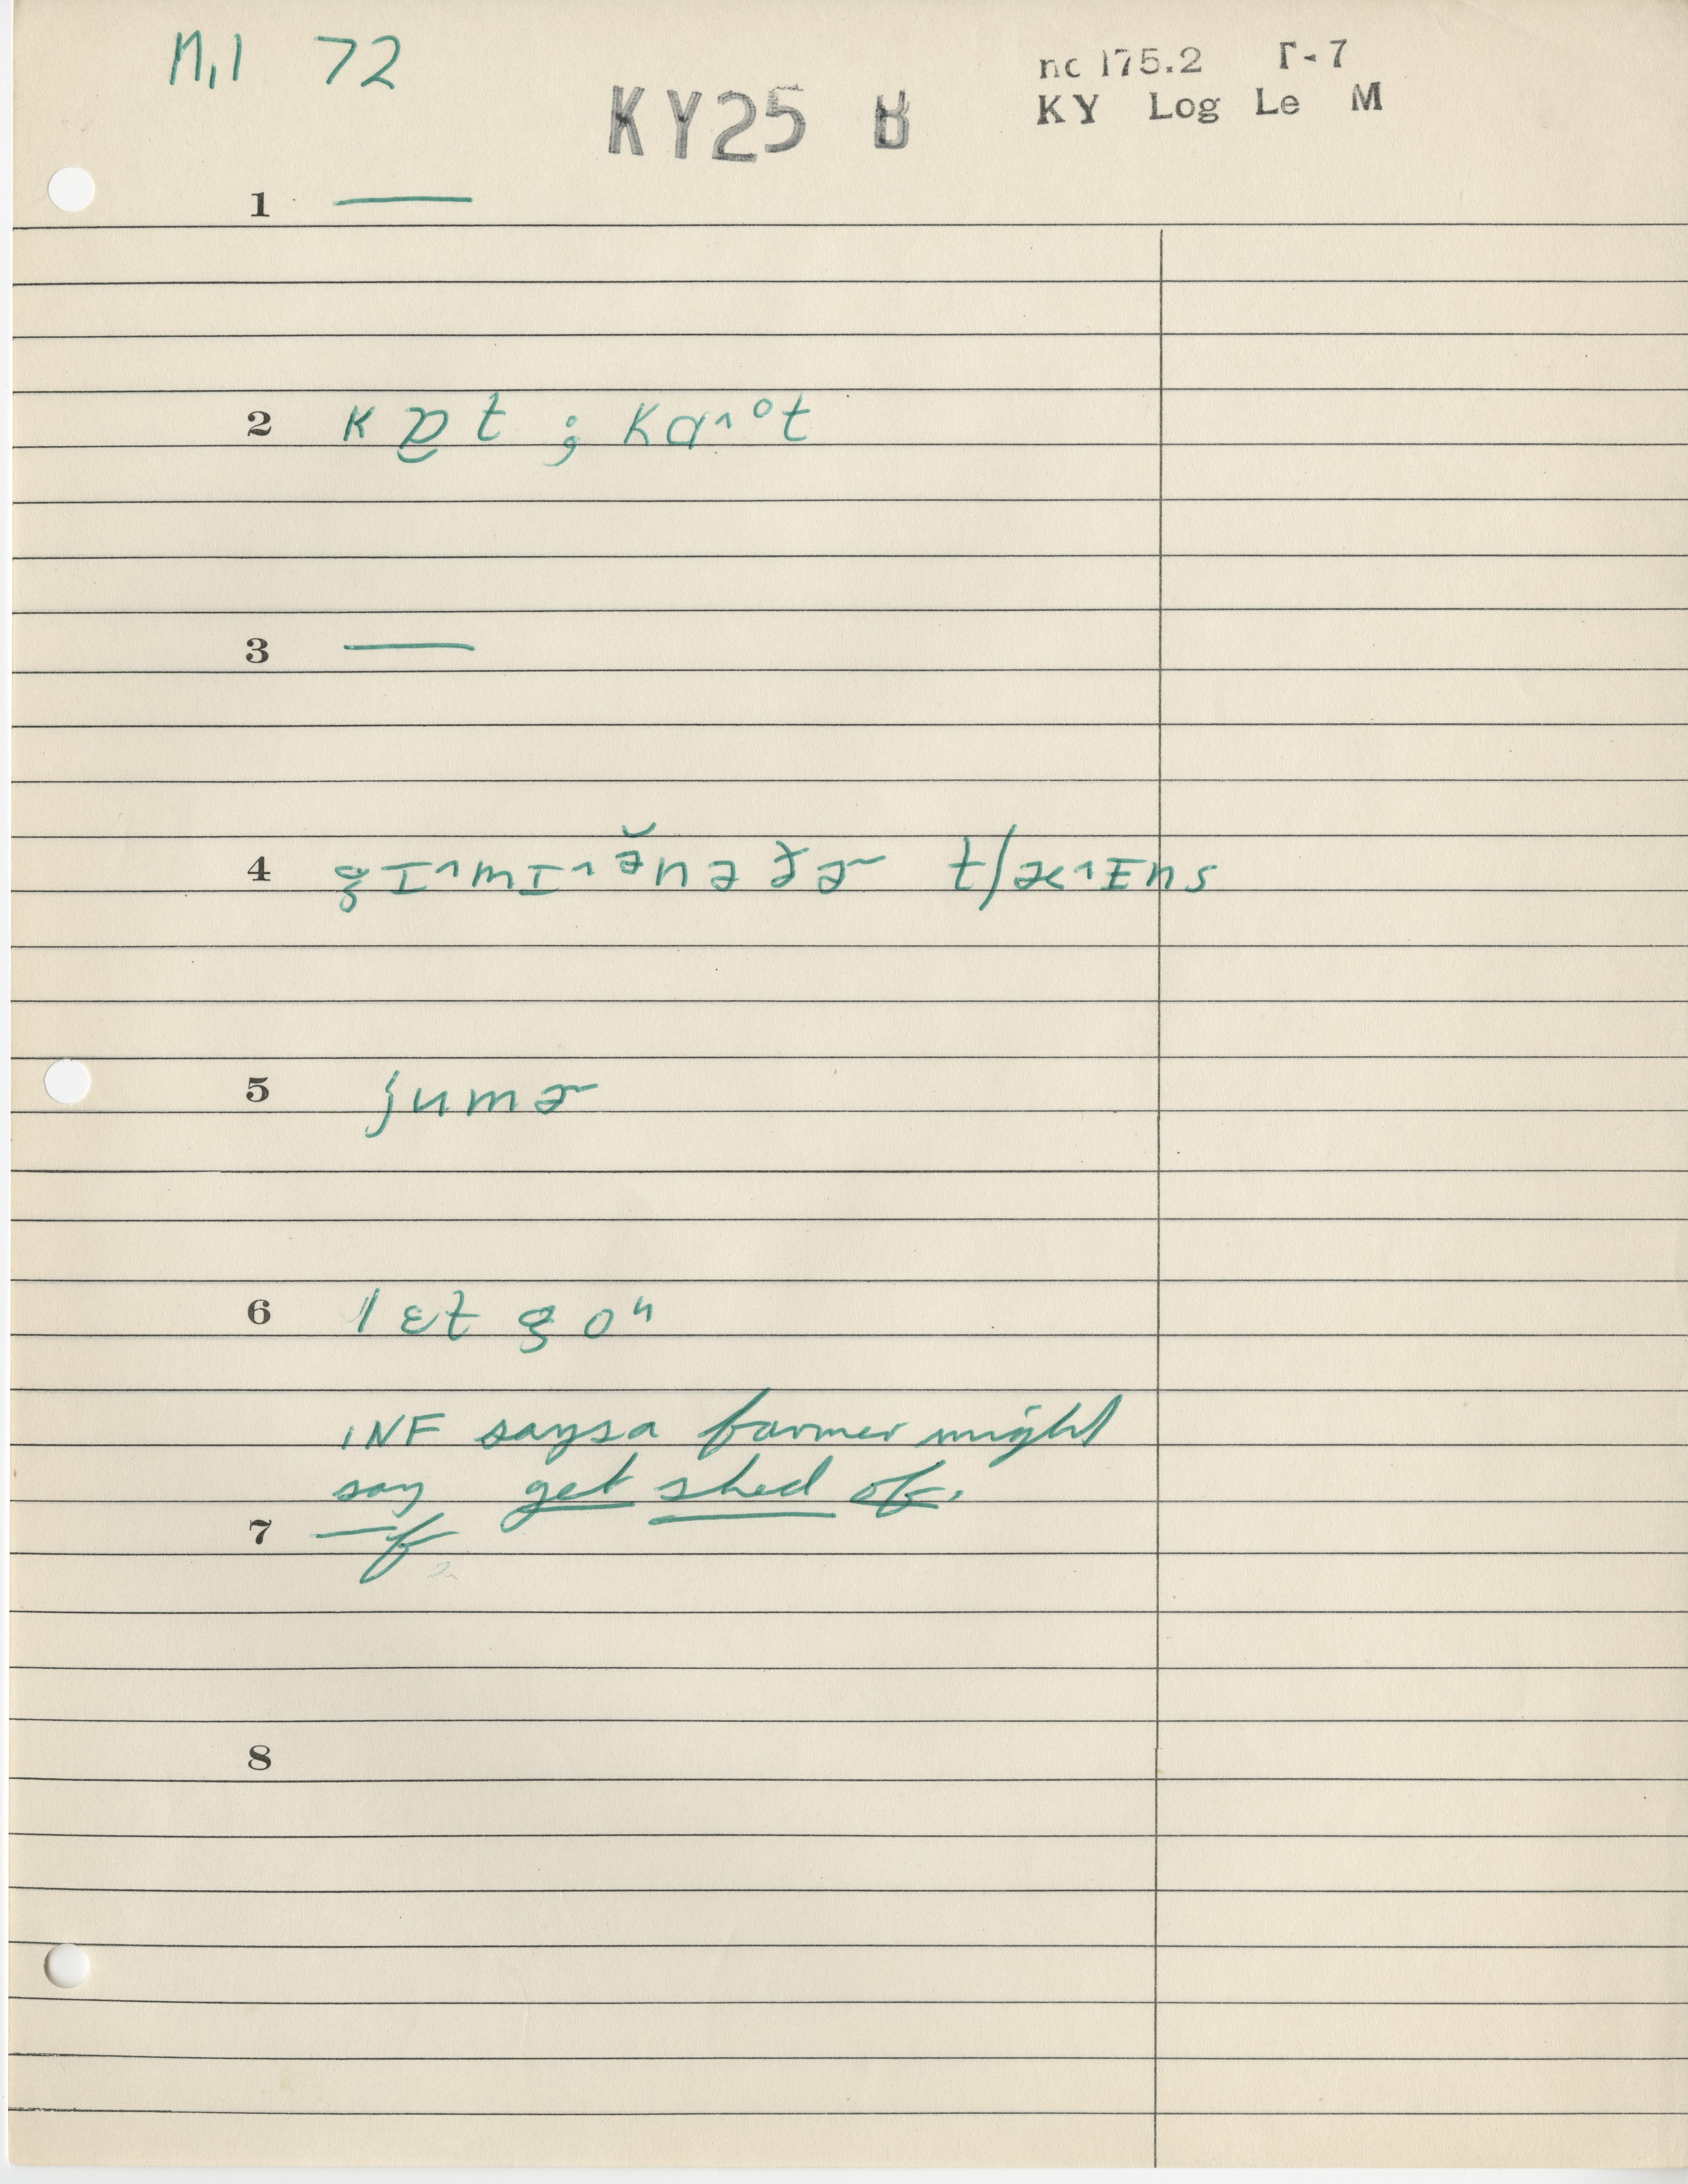 M,1 72
nc 175.2 T-7
KY25 B
KY Log Le M
1 —
2 kɒ̯t ; kɑ^ᵊt
3 —
4 gɪ^mɪ^ə̆nəðɚ tʃæ^ɪns
5 jumɚ
6 lɛt goᵘ
INF says a farmer might
say get shed of.
7 —f
8